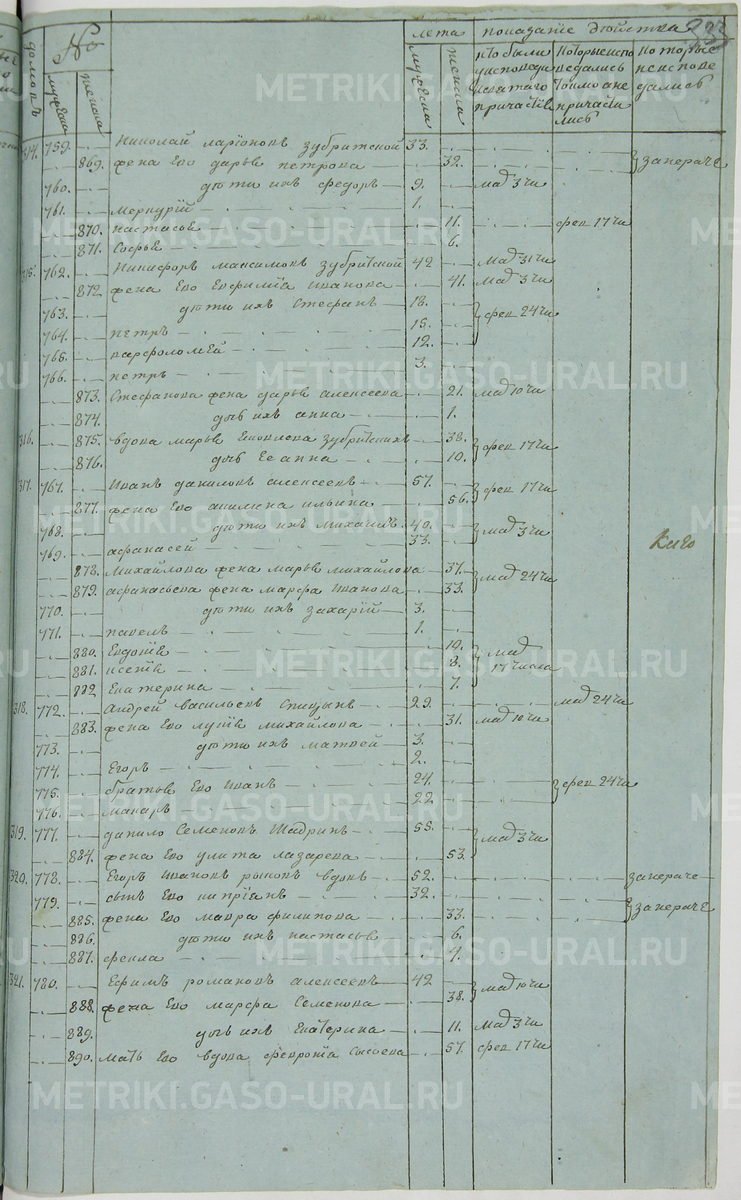 223
домовъ № лета показанiе действа
мужеска женска мужеска женска кто были у исповеди и святаго причастiя которые исповедались токмо а не причастились которые не исповедались
314. 759. Николай ларiоновъ зубритской 33.
869. жена Его дарья петрова 32. за нераче
760. дети ихъ федоръ 9. мар 3 чи
761. меркурiй 1.
870. настасья 11. фев 17 чи
871. Софья 6.
315. 762. Никифоръ максимовъ зубритской 42 мар 3 чи
872 жена Его Евфимiя иванова 41. мар 3 чи
763. дети ихъ Стефанъ 18. фев 24 чи
764. петръ 15.
765. варфоломей 12.
766. петръ 3.
873. Стефанова жена дарья алексеева 21. мар 10 чи
874. дочь ихъ анна 1.
316. 875. вдова марья зубритскихъ 38. фев 17 чи
876. дочь Ее анна 10.
317. 767. Иванъ даниловъ алексеевъ 57. фев 17 чи
877. жена Его акилина ильина 56.
768. дети ихъ михаилъ 40. мар 3 чи
769. афанасей 33.
878. михайлова жена марья михайлова 37. мар 24 чи
879. афанасьева жена марфа иванова 33.
770. дети ихъ захарiй 3.
771. павелъ 1.
880. Евдотiя 10. мар
881. ксенiя 8. 17 числа
882 Екатерина 7.
318. 772. Андрей васильевъ Спицынъ 29. мар 24 чи
883. жена Его лукiя михайлова 31. мар 10 чи
773. дети ихъ матвей 3.
774. Егоръ 2.
775. братья Его иванъ 24. фев 24 чи
776. макаръ 22.
319. 777. данило Семеновъ Шадринъ 55. мар 3 чи
884. жена Его улита лазарева 53.
320. 778. Егоръ ивановъ рыковъ вдовъ 52. за нераче
779. сынъ Его кипрiянъ 32. за нераче
885. жена Его мавра филипова 33.
886. дети ихъ настасья 6.
887. фекла 4.
321. 780. Ефимъ романовъ алексеевъ 42 мар 10 чи
888. жена Его марфа Семенова 38.
889. дочь ихъ Екатерина 11. мар 3 чи
890. мать Его вдова феврония Сысоева 57. фев 17 чи
METRIKI.GASO-URAL.RU